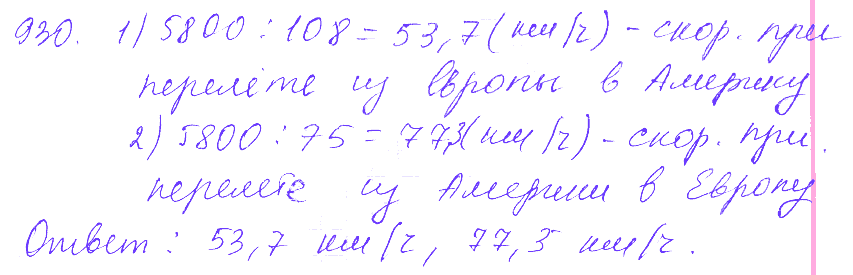 930. 1) 5800 : 108 = 53,7 (км/ч) - скор. при
перелёте из Европы в Америку
2) 5800 : 75 = 77,3 (км/ч) - скор. при
перелете из Америки в Европу
Ответ: 53,7 км/ч, 77,3 км/ч.